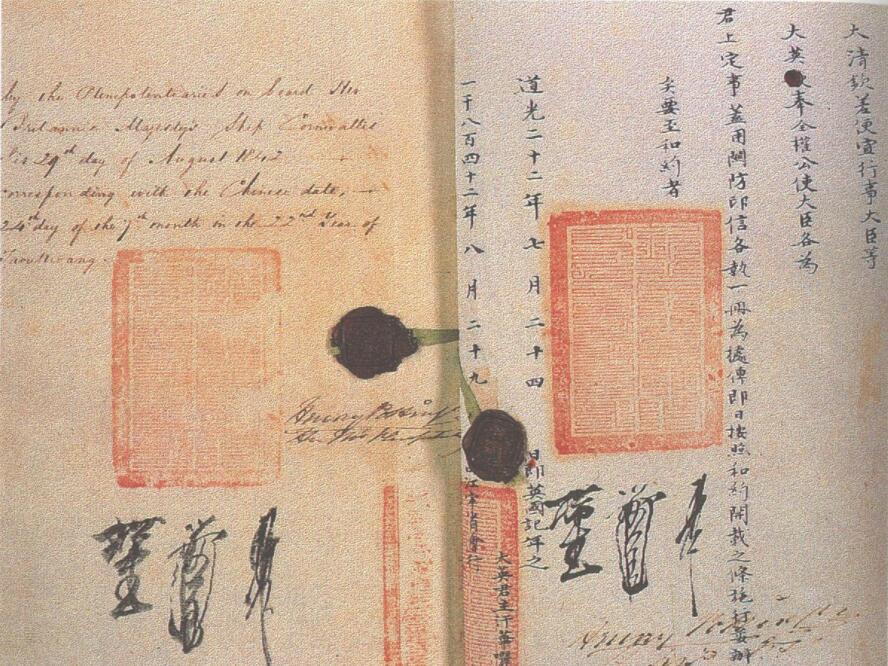 by the Plenipotentiaries on board Her
Britannic Majesty's Ship Cornwallis
is 29th day of August 1842 —
corresponding with the Chinese date, —
24th day of the 7th month in the 22nd Year of
Taoukwang.
Henry
大清欽差便宜行事大臣等
大英欽奉全權公使大臣各為
君上定事蓋用關防印信各執一冊為據俾即日按照和約開載之條施行妥辦
矣要至和約者
道光二十二年七月二十四日即英國記年之
一千八百四十二年八月二十九日由江寧省會行
大英君主汗華囇
Henry Pottinger